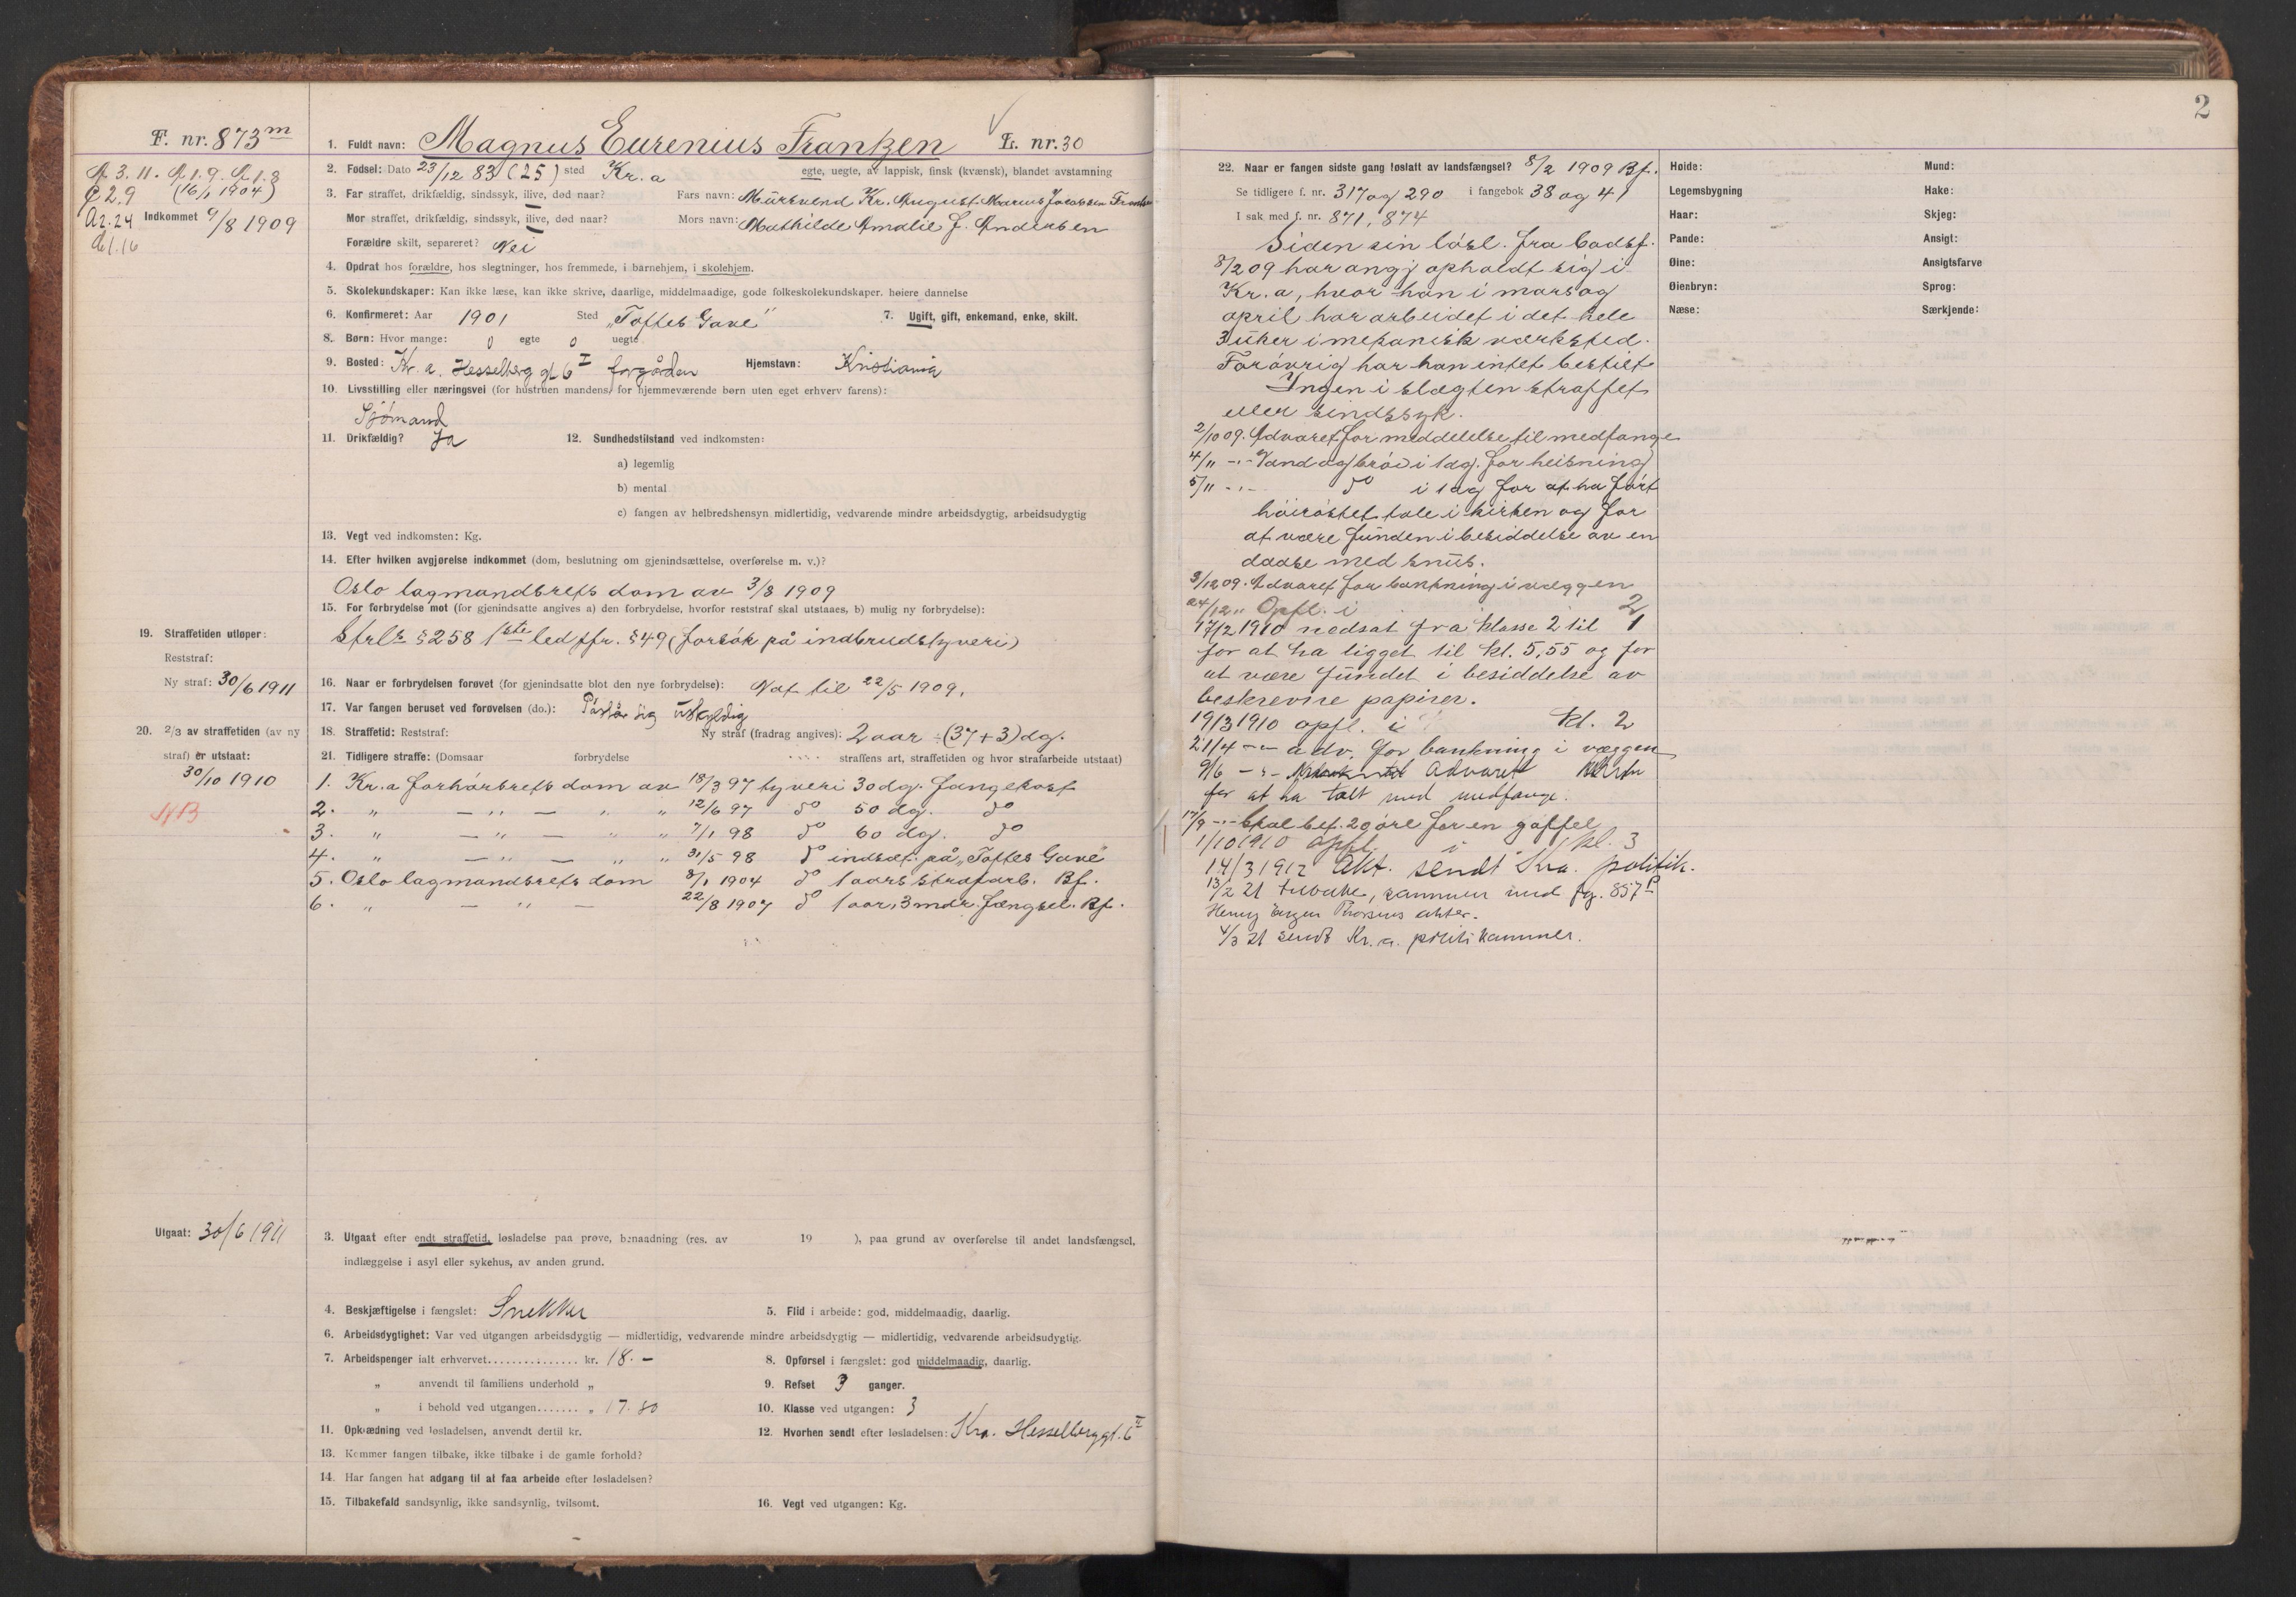 F. nr. 873 m
A 3. 11. A 1. 9. A 1. 8
C 2. 9 (16/1 1904)
A 2. 24 Indkommet 9/8 1909
A 1. 16
1. Fuldt navn: Magnus Eurenius Frantzen L. nr. 30
2. Fødsel: Dato 23/12 83 (25) sted Kr.a egte, uegte, av lappisk, finsk (kvænsk), blandet avstamning
3. Far straffet, drikfældig, sindssyk, ilive, død naar? Fars navn: Mursvend Kr. August Marius Jacobsen
Mor straffet, drikfældig, sindssyk, ilive, død naar? Mors navn: Mathilde Amalie f. Andersen
Forældre skilt, separeret? Nei
4. Opdrat hos forældre, hos slegtninger, hos fremmede, i barnehjem, i skolehjem.
5. Skolekundskaper: Kan ikke læse, kan ikke skrive, daarlige, middelmaadige, gode folkeskolekundskaper. høiere dannelse
6. Konfirmeret: Aar 1901 Sted „Toftes Gave" 7. Ugift, gift, enkemand, enke, skilt.
8. Børn: Hvor mange: 0 egte 0 uegte
9. Bosted: Kr. a. Hesselberg gt 6 I forgården Hjemstavn: Kristiania
10. Livsstilling eller næringsvei (for hustruen mandens, for hjemmeværende børn uten eget erhverv farens):
Sjømand
11. Drikfældig? Ja 12. Sundhedstilstand ved indkomsten:
a) legemlig
b) mental
c) fangen av helbredshensyn midlertidig, vedvarende mindre arbeidsdygtig, arbeidsudygtig
13. Vegt ved indkomsten: Kg.
14. Efter hvilken avgjørelse indkommet (dom, beslutning om gjenindsættelse, overførelse m. v.)?
Oslo lagmandsrets dom av 3/8 1909
15. For forbrydelse mot (for gjenindsatte angives a) den forbrydelse, hvorfor reststraf skal utstaaes, b) mulig ny forbrydelse):
Strl's § 258 1ste led jfr. § 49 (forsøk på indbrudstyveri)
19. Straffetiden utløper:
Reststraf:
Ny straf: 30/6 1911
16. Naar er forbrydelsen forøvet (for gjenindsatte blot den nye forbrydelse): Nat til 22/5 1909.
17. Var fangen beruset ved forøvelsen (do.): Påstår sig uskyldig
20. 2/3 av straffetiden (av ny
straf) er utstaat:
30/10 1910
NB
18. Straffetid: Reststraf: Ny straf (fradrag angives): 2 aar ÷ (37+3) dg.
21. Tidligere straffe: (Domsaar forbrydelse straffens art, straffetiden og hvor strafarbeide utstaat)
1. Kr.a forhørsrets dom av 18/3 97 tyveri 30 dg. fangekost
2. " — " — " " 12/6 97 do 50 dg. do
3. " — " — " " 7/1 98 do 60 dg. do
4. " — " — " " 31/5 98 do indsat på „Toftes Gave"
5. Oslo lagmandsrets dom 8/1 1904 do 1 aars strafarb. Bf.
6. " — " — 22/8 1907 do 1 aar, 3 mdr. fængsel. Bf.
Utgaat: 30/6 1911
3. Utgaat efter endt straffetid, løsladelse paa prøve, benaadning (res. av 19 ), paa grund av overførelse til andet landsfængsel,
indlæggelse i asyl eller sykehus, av anden grund.
4. Beskjæftigelse i fængslet: Snekker 5. Flid i arbeide: god, middelmaadig, daarlig.
6. Arbeidsdygtighet: Var ved utgangen arbeidsdygtig — midlertidig, vedvarende mindre arbeidsdygtig — midlertidig, vedvarende arbeidsudygtig.
7. Arbeidspenger ialt erhvervet............... kr. 18. – 8. Opførsel i fængslet: god middelmaadig, daarlig.
„ anvendt til familiens underhold „ 9. Refset 3 ganger.
„ i behold ved utgangen....... „ 17. 80 10. Klasse ved utgangen: 3
11. Opklædning ved løsladelsen, anvendt dertil kr. 12. Hvorhen sendt efter løsladelsen: Kra. Hesselberggt. 6 II
13. Kommer fangen tilbake, ikke tilbake i de gamle forhold?
14. Har fangen hat adgang til at faa arbeide efter løsladelsen?
15. Tilbakefald sandsynlig, ikke sandsynlig, tvilsomt. 16. Vegt ved utgangen: Kg.
2
22. Naar er fangen sidste gang løslatt av landsfængsel? 8/2 1909 Bf.
Se tidligere f. nr. 317 og 290 i fangebok 38 og 41
I sak med f. nr. 871, 874
Siden sin løsl. fra Bodsf.
8/2 09 har angj opholdt sig i
Kr. a, hvor han i mars og
april har arbeidet i det hele
3 uker i mekanisk værksted.
Forøvrig har han intet bestilt
Ingen i slægten straffet
eller sindssyk.
2/10 09. Advaret for meddelelse til medfange
4/11 -"- Vand og brød i 1 dg. for heisning
5/11 -"- do i 1 dg for at ha ført
høirøstet tale i kirken og for
at være funden i besiddelse av en
daase med snus.
3/12 09. Advaret for bankning i væggen
24/12 " Opfl. i 2
17/2 1910 nedsat fra klasse 2 til 1
for at ha ligget til kl. 5,55 og for
at være fundet i besiddelse av
beskrevne papirer.
19/3 1910 opfl. i kl. 2
21/4 -"- adv. for bankning i væggen
9/6 -"- Advaret
for at ha talt med medfange.
17/9 -"- Skal bet. 20 øre for en gaffel
1/10 1910 opfl. i kl. 3
14/3 1912 Akt. sendt Kra. politik.
13/2 21 tilbake, sammen med fg. 857 P
Henry Jørgen Thorsens akter.
4/3 21 sendt Kr. a. politikammer.
Høide: Mund:
Legemsbygning Hake:
Haar: Skjeg:
Pande: Ansigt:
Øine: Ansigtsfarve
Øieabryn: Sprog:
Næse: Særkjende: